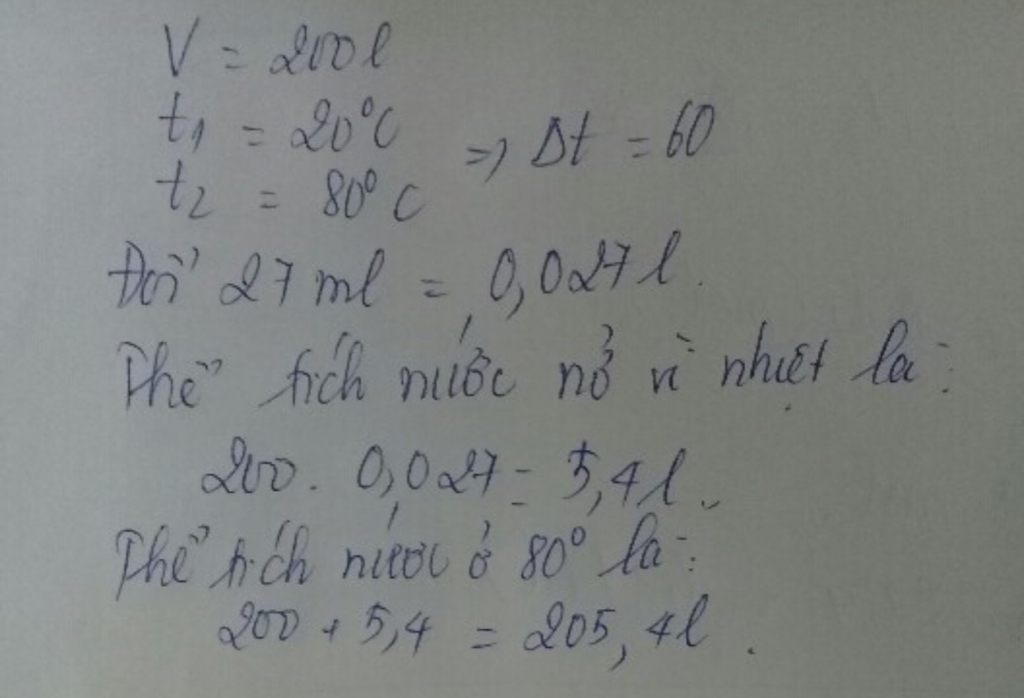 V = 200l
t₁ = 20°C
t₂ = 80°C
=> Δt = 60
Đổi 27 ml = 0,027 l.
Thể tích nước nở vì nhiệt là:
200. 0,027 = 5,4 l.
Thể tích nước ở 80° là:
200 + 5,4 = 205,4l.